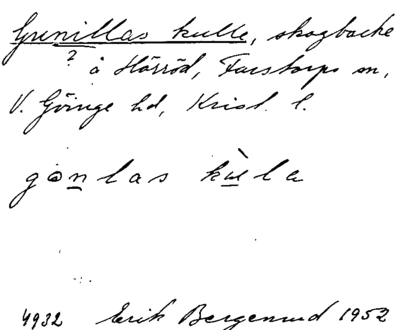 Gunillas kulle, skogbacke
? å Hörröd, Farstorps sn,
V. Göinge hd, Krist. l.
gonlas kula
4932 Erik Bergenrud 1952